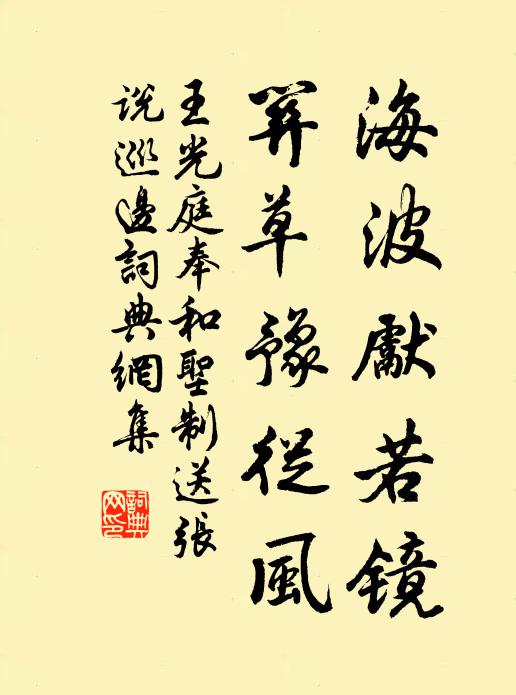 海波獻若镜
草豫從風
王光庭奉和聖制送張
說巡邊詞典網集
詞典网印